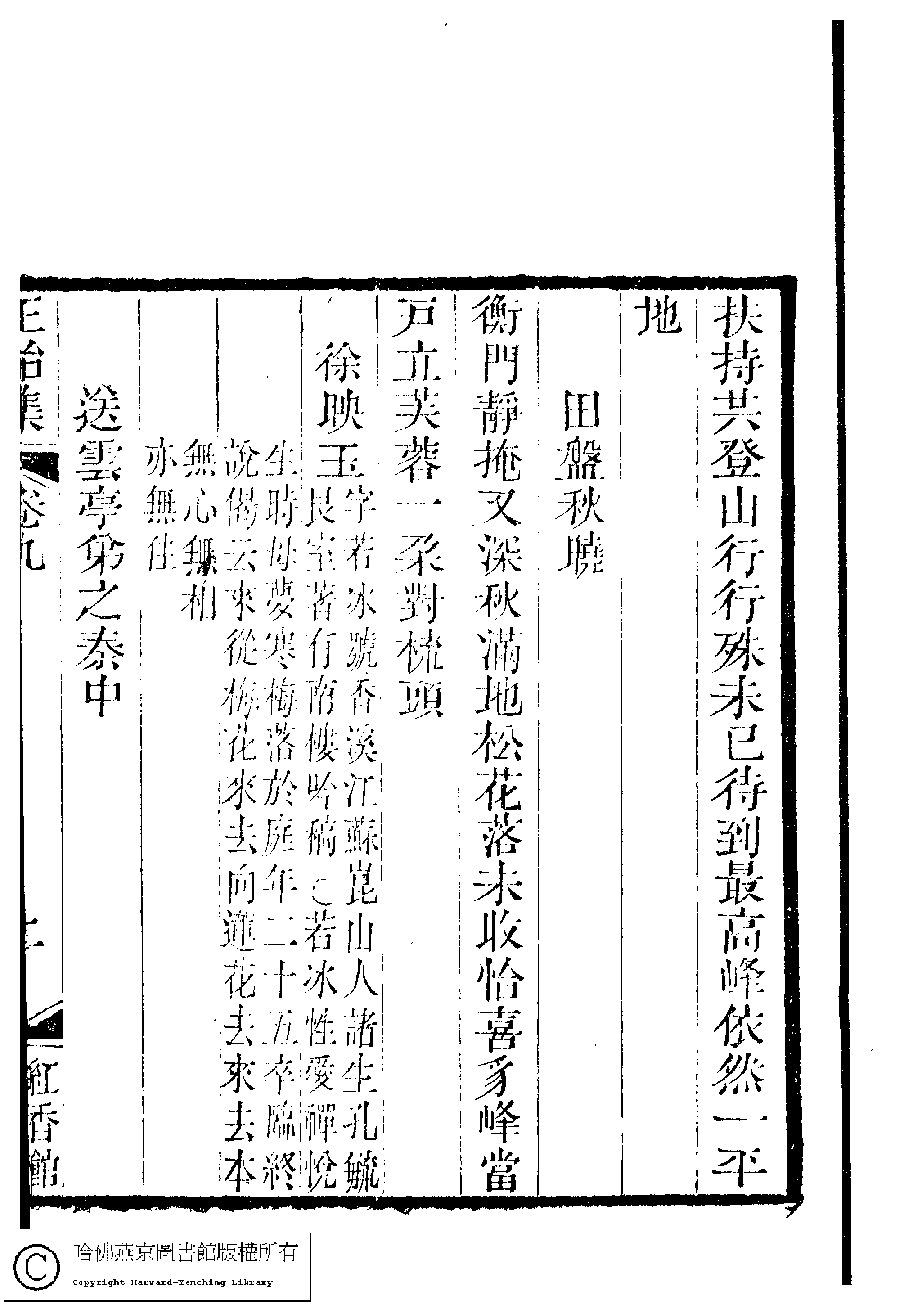 扶持共登山行行殊未已待到最高峰依然一平
地
田盤秋曉
衡門靜掩又深秋滿地松花落未收怡喜豸峰當
戶立芙蓉一朶對梳頭
徐映玉
字若冰號香溪江蘇崑山人諸生孔毓
良室著有南樓吟稿〇若冰性愛禪悅
生時母夢寒梅落於庭年二十五卒臨終
說偈云來從梅花來去向遊花去來去本
無心無相
亦無住
送雲亭弟之泰中
正始集
卷九
紅香館
哈佛燕京圖書館版權所有
Copyright Harvard-Yenching Library